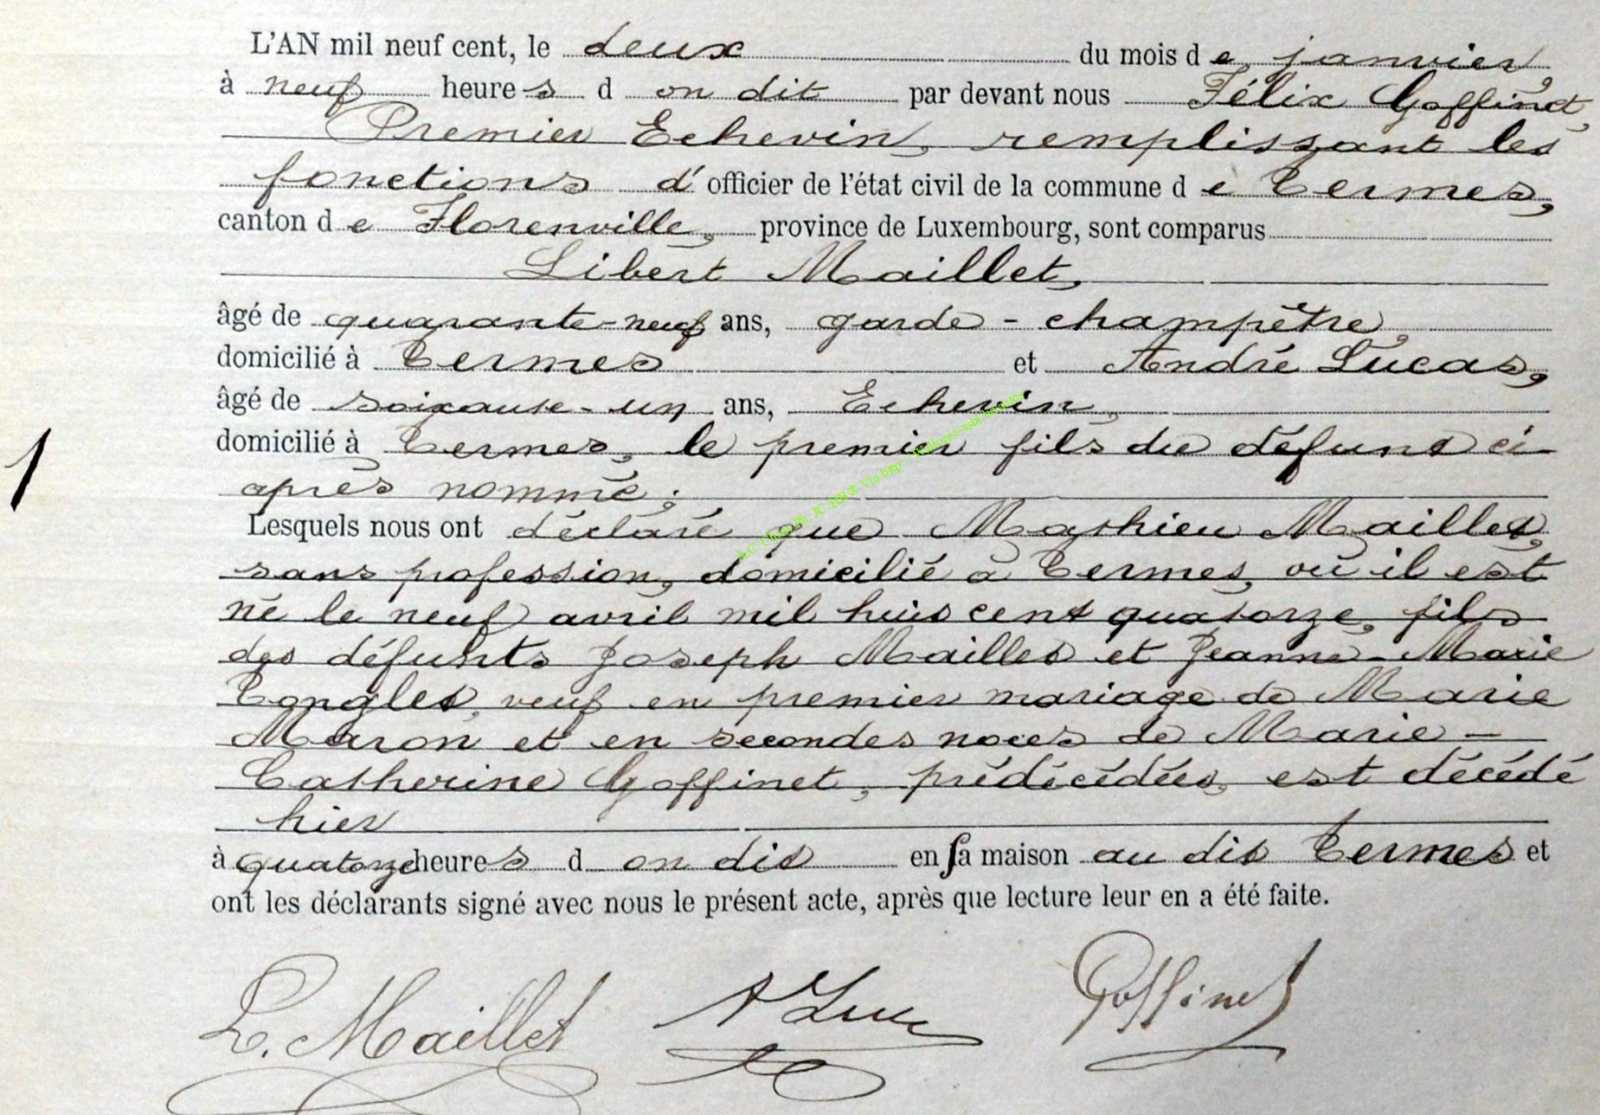 L'AN mil neuf cent, le deux du mois de janvier,
à neuf heures d on dit par devant nous Félix Goffinet,
Premier Echevin, remplissant les
fonctions d'officier de l'état civil de la commune de Termes,
canton de Florenville, province de Luxembourg, sont comparus
Libert Maillet,
âgé de quarante-neuf ans, garde-champêtre,
domicilié à Termes et André Lucas,
âgé de soixante-un ans, Echevin,
domicilié à Termes, le premier fils du défunt ci-
après nommé;
1
Lesquels nous ont déclaré que Mathieu Maillet,
sans profession, domicilié à Termes, où il est
né le neuf avril mil huit cent quatorze, fils
des défunts Joseph Maillet et Jeanne-Marie
veuf en premier mariage de Marie
Maron et en secondes noces de Marie-
Catherine Goffinet, prédécédées, est décédé
hier
à quatorze heures d on dit en sa maison au dit Termes et
ont les déclarants signé avec nous le présent acte, après que lecture leur en a été faite.
L. Maillet A Luc Goffinet